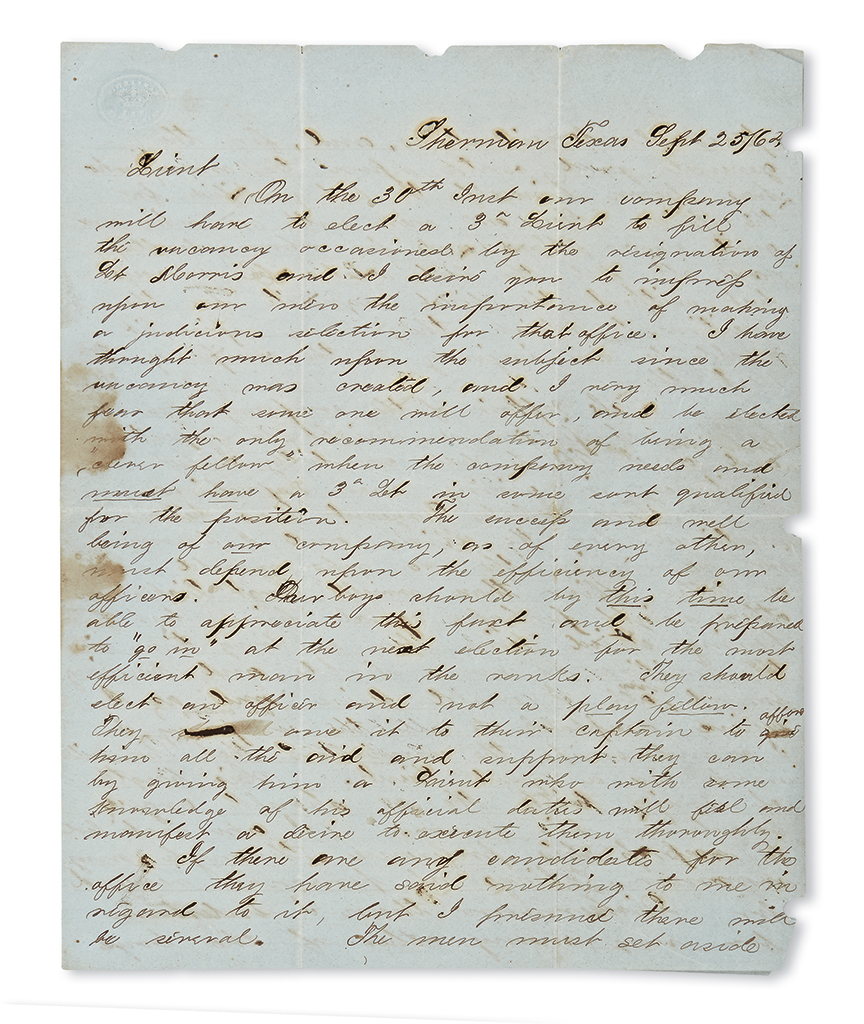 Sherman Texas Sept 25/62
Lieut
On the 30th Inst our company
will have to elect a 3rd Lieut to fill
the vacancy occasioned by the resignation of
Lt Morris and I desire you to impress
upon our men the importance of making
a judicious selection for that office. I have
thought much upon the subject since the
vacancy was created, and I very much
fear that some one will offer, and be elected
with the only recommendation of being a
"clever fellow" when the company needs and
must have a 3d Lt in some sort qualified
for the position. The success and well
being of our company, as of every other,
must depend upon the efficiency of our
officers. Our boys should by this time be
able to appreciate this fact and be prepared
to "go in" at the next election for the most
efficient man in the ranks. They should
elect an officer and not a play fellow.
They owe it to their captain to afford
him all the aid and support they can
by giving him a Lieut who with some
knowledge of his official duties will feel and
manifest a desire to execute them thoroughly.
If there are any candidates for the
office they have said nothing to me in
regard to it, but I presume there will
be several. The men must set aside